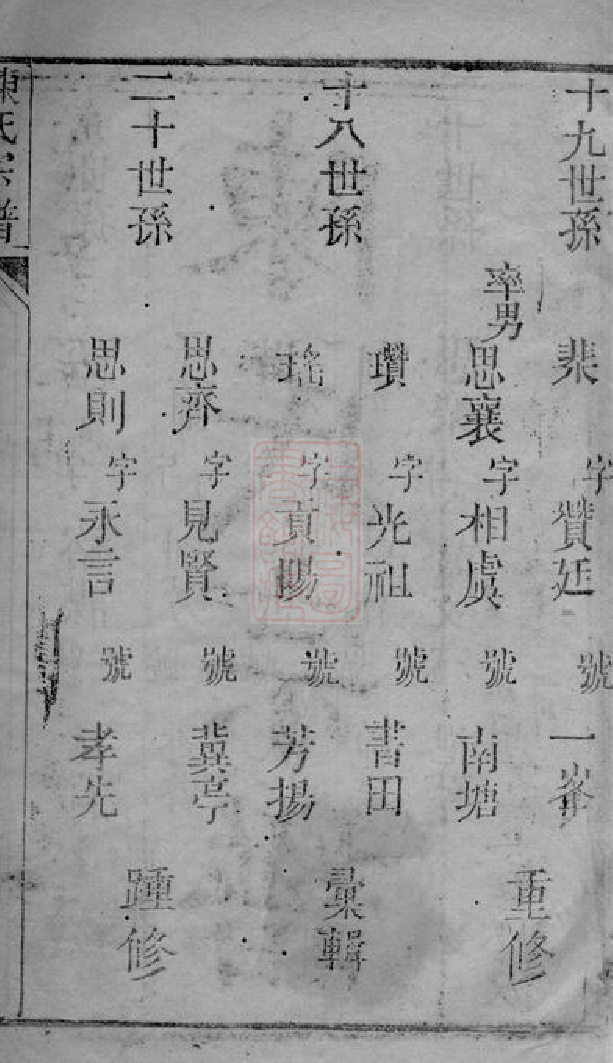 十九世孫
棐 字 贊廷 號 一峯
率男
思襄 字 相虞 號 南塘
重修
十八世孫
瓚 字 光祖 號 書田
瑤 字 貢揚 號 芳揚
彙輯
二十世孫
思齊 字 見賢 號 冀亭
思則 字 永言 號 孝先
踵修
陳氏宗譜